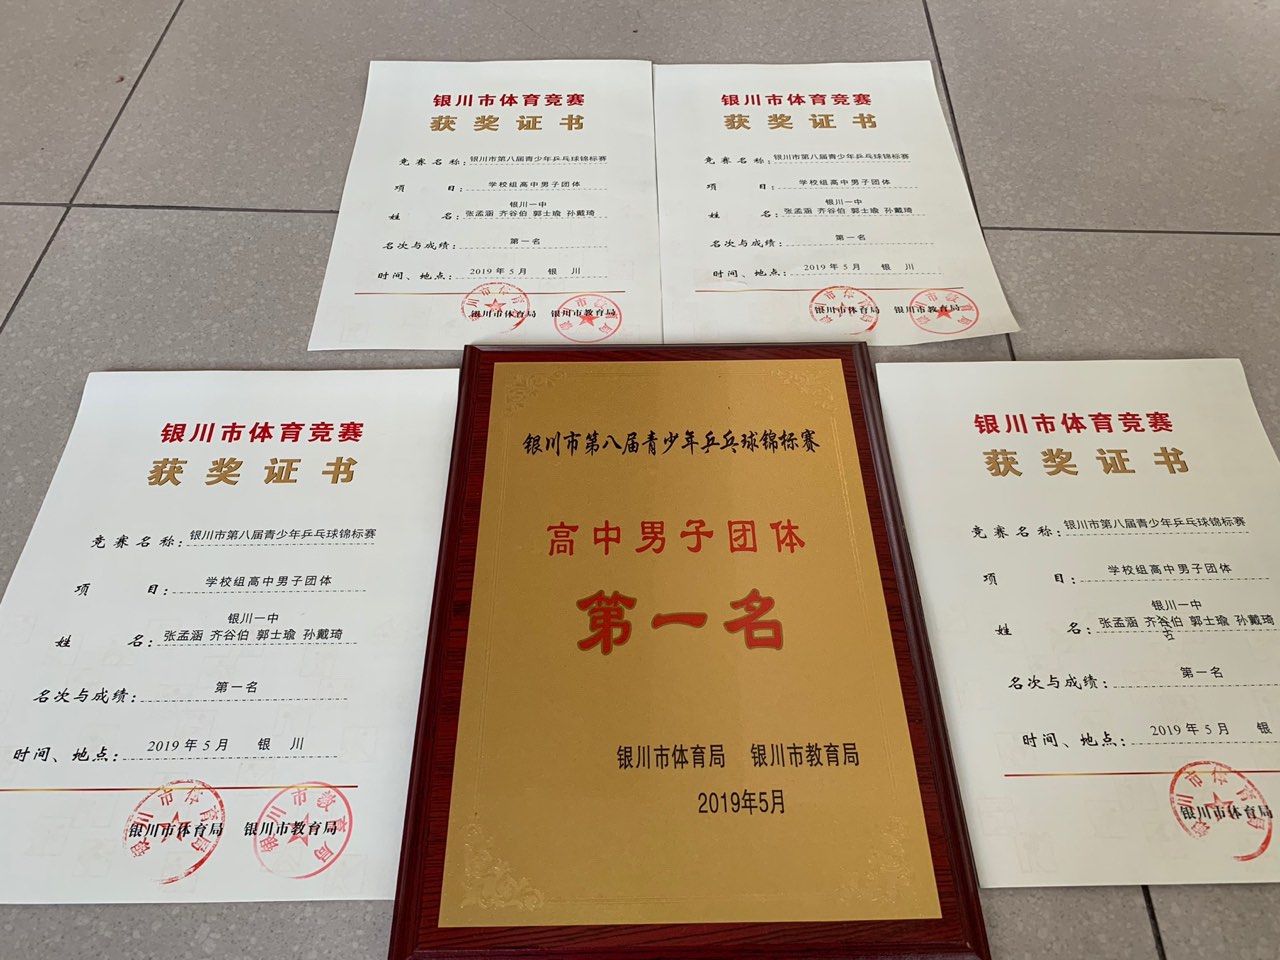 银川市体育竞赛
获奖证书
竞赛名称：银川市第八届青少年乒乓球锦标赛
项目：学校组高中男子团体
银川一中
姓名：张孟涵 齐谷伯 郭士瑜 孙戴琦
名次与成绩：第一名
时间、地点：2019年5月 银川
银川市体育局 银川市教育局
银川市体育竞赛
获奖证书
竞赛名称：银川市第八届青少年乒乓球锦标赛
项目：学校组高中男子团体
银川一中
姓名：张孟涵 齐谷伯 郭士瑜 孙戴琦
名次与成绩：第一名
时间、地点：2019年5月 银川
银川市体育局 银川市教育局
银川市体育竞赛
获奖证书
竞赛名称：银川市第八届青少年乒乓球锦标赛
项目：学校组高中男子团体
银川一中
姓名：张孟涵 齐谷伯 郭士瑜 孙戴琦
名次与成绩：第一名
时间、地点：2019年5月 银川
银川市体育局 银川市教育局
银川市第八届青少年乒乓球锦标赛
高中男子团体
第一名
银川市体育局 银川市教育局
2019年5月
银川市体育竞赛
获奖证书
竞赛名称：银川市第八届青少年乒乓球锦标赛
项目：学校组高中男子团体
银川一中
姓名：张孟涵 齐谷伯 郭士瑜 孙戴琦
名次与成绩：第一名
时间、地点：2019年5月 银
银川市体育局